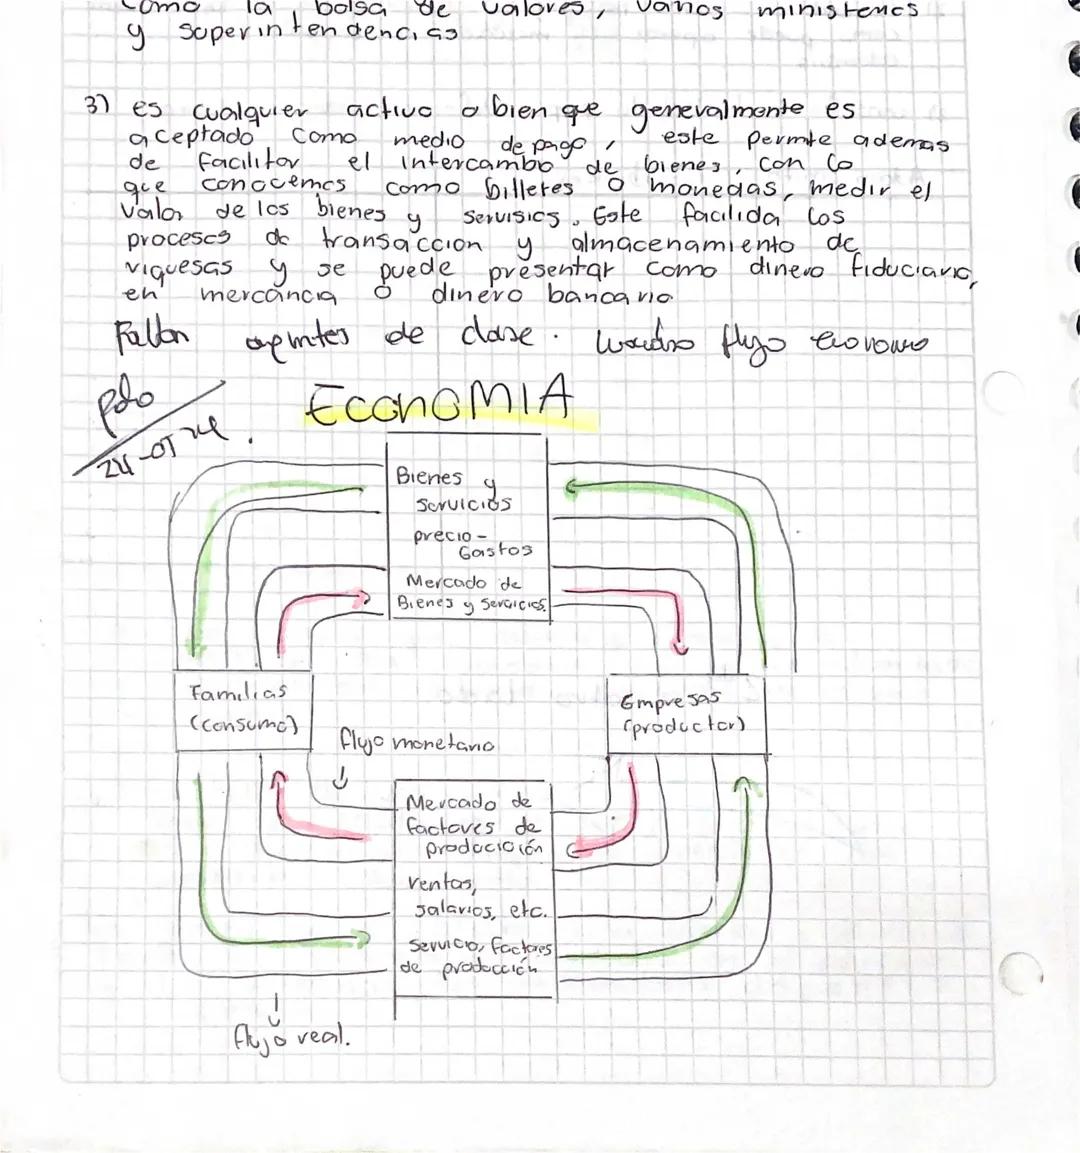 como la bolsa de valores, varios ministerios
y superintendencias
3) es cualquier activo o bien que generalmente es
aceptado como medio de pago, este permite ademas
de facilitar el intercambo de bienes, con lo
que conocemos como billetes o monedas, medir el
valor de los bienes y servisios. Este facilida los
procesos de transaccion y almacenamiento de
riquesas y se puede presentar como dinero fiduciario,
en mercancia o dinero bancario
Faltan apuntes de clase. cuadro flujo economo
pdo
24-05-24.
ECONOMIA
Bienes y
servicios
precio -
Gastos
Mercado de
Bienes y servicios.
Familias
(consumo)
Empresas
(productor)
flujo monetario
Mercado de
factores de
produccición
ventas,
salarios, etc.
servicio, factores
de producción
flujo real.